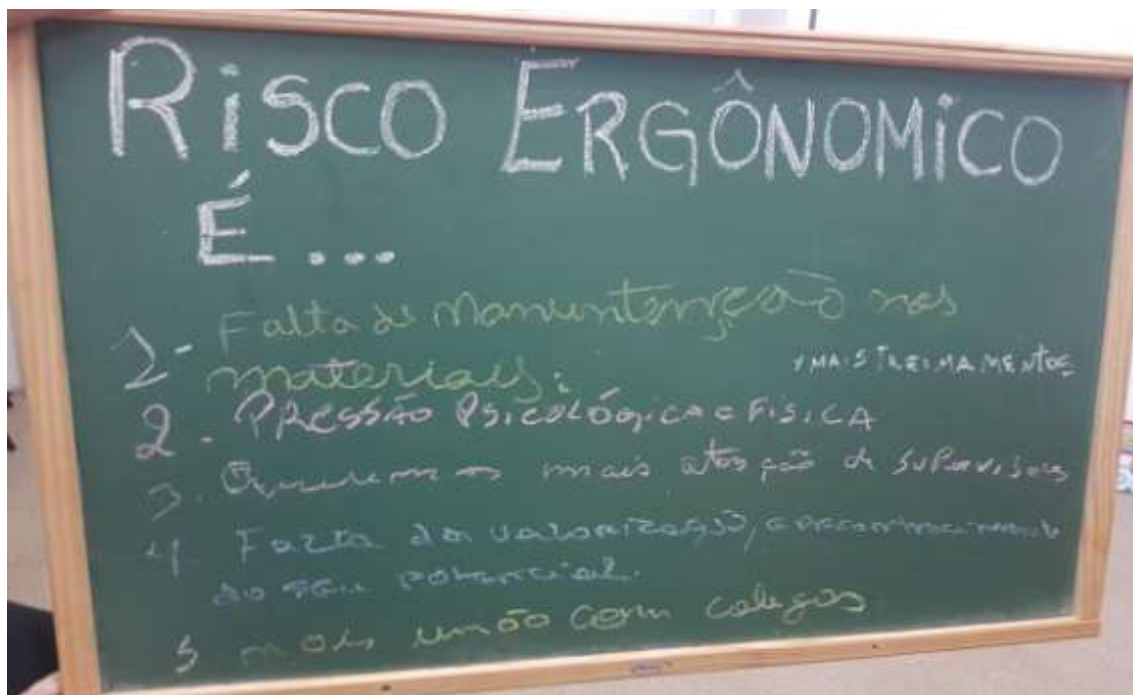 RiSCO ERGÔNOMiCO
É...
1- Falta de Manuntenção nos
materiais.
+ MAIS TREINAMENTOS
2. PRESSÃO PSICOLÓgica e FISICA
3. Queremos mais atenção de SUPervisores
4. Falta de valorização, e reconhecimento
do seu potencial.
5 mais união com colegas